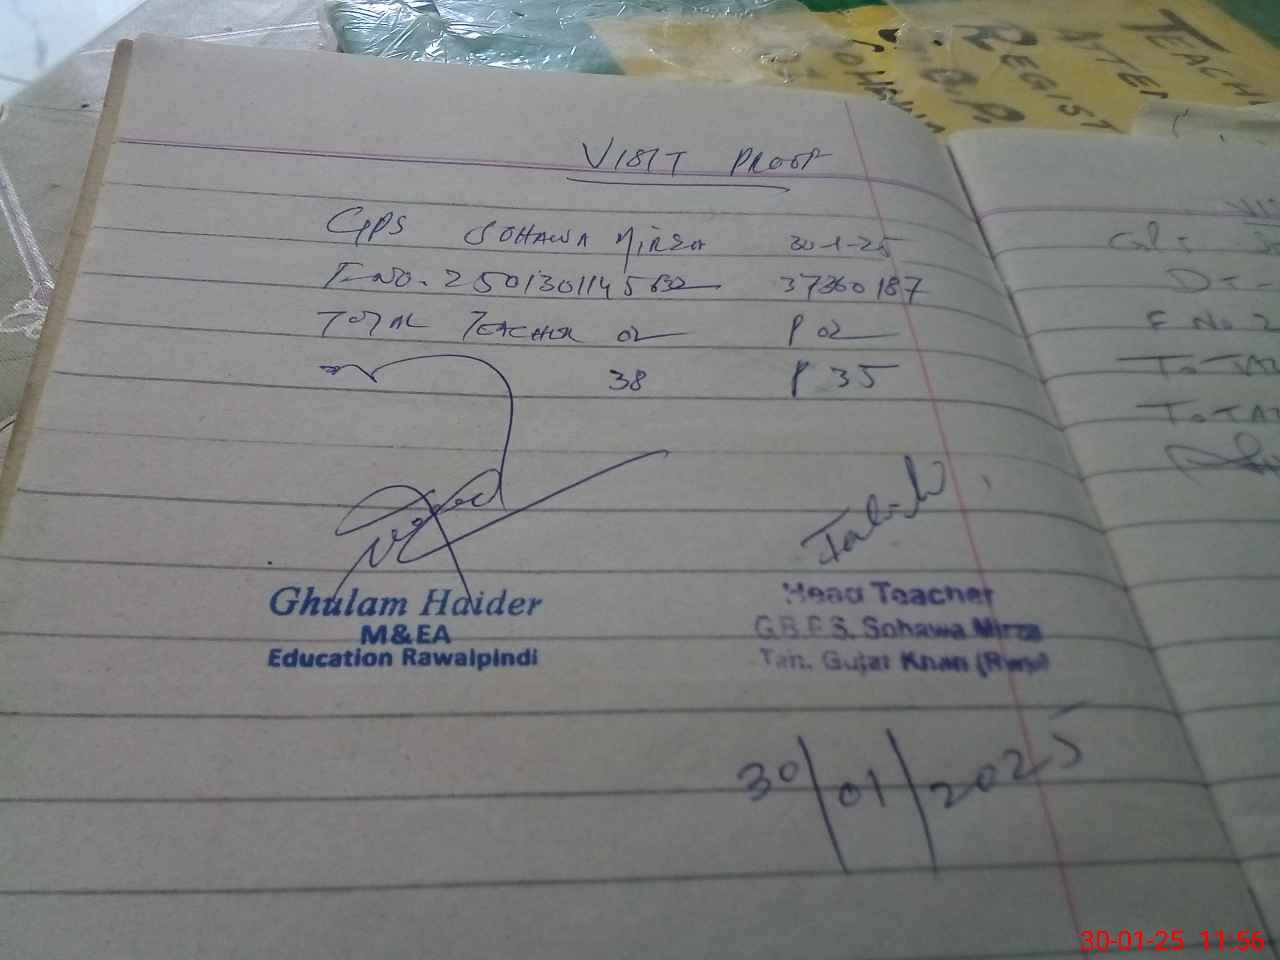 VISIT PROOF
GPS SOHAWA MIRZA 30-1-25
F-NO. 2501301145632 37360187
TOTAL TEACHER 02 P 02
38 P 35
Ghulam Haider
M&EA
Education Rawalpindi
Head Teacher
G.B.P.S. Sohawa Mirza
Teh. Gujar Khan (Rwp)
30/01/2025
TEACH
ATTEN
REGIST
SOHAWA
F No. 2
TOTAL
TOTAL
30-01-25 11:56